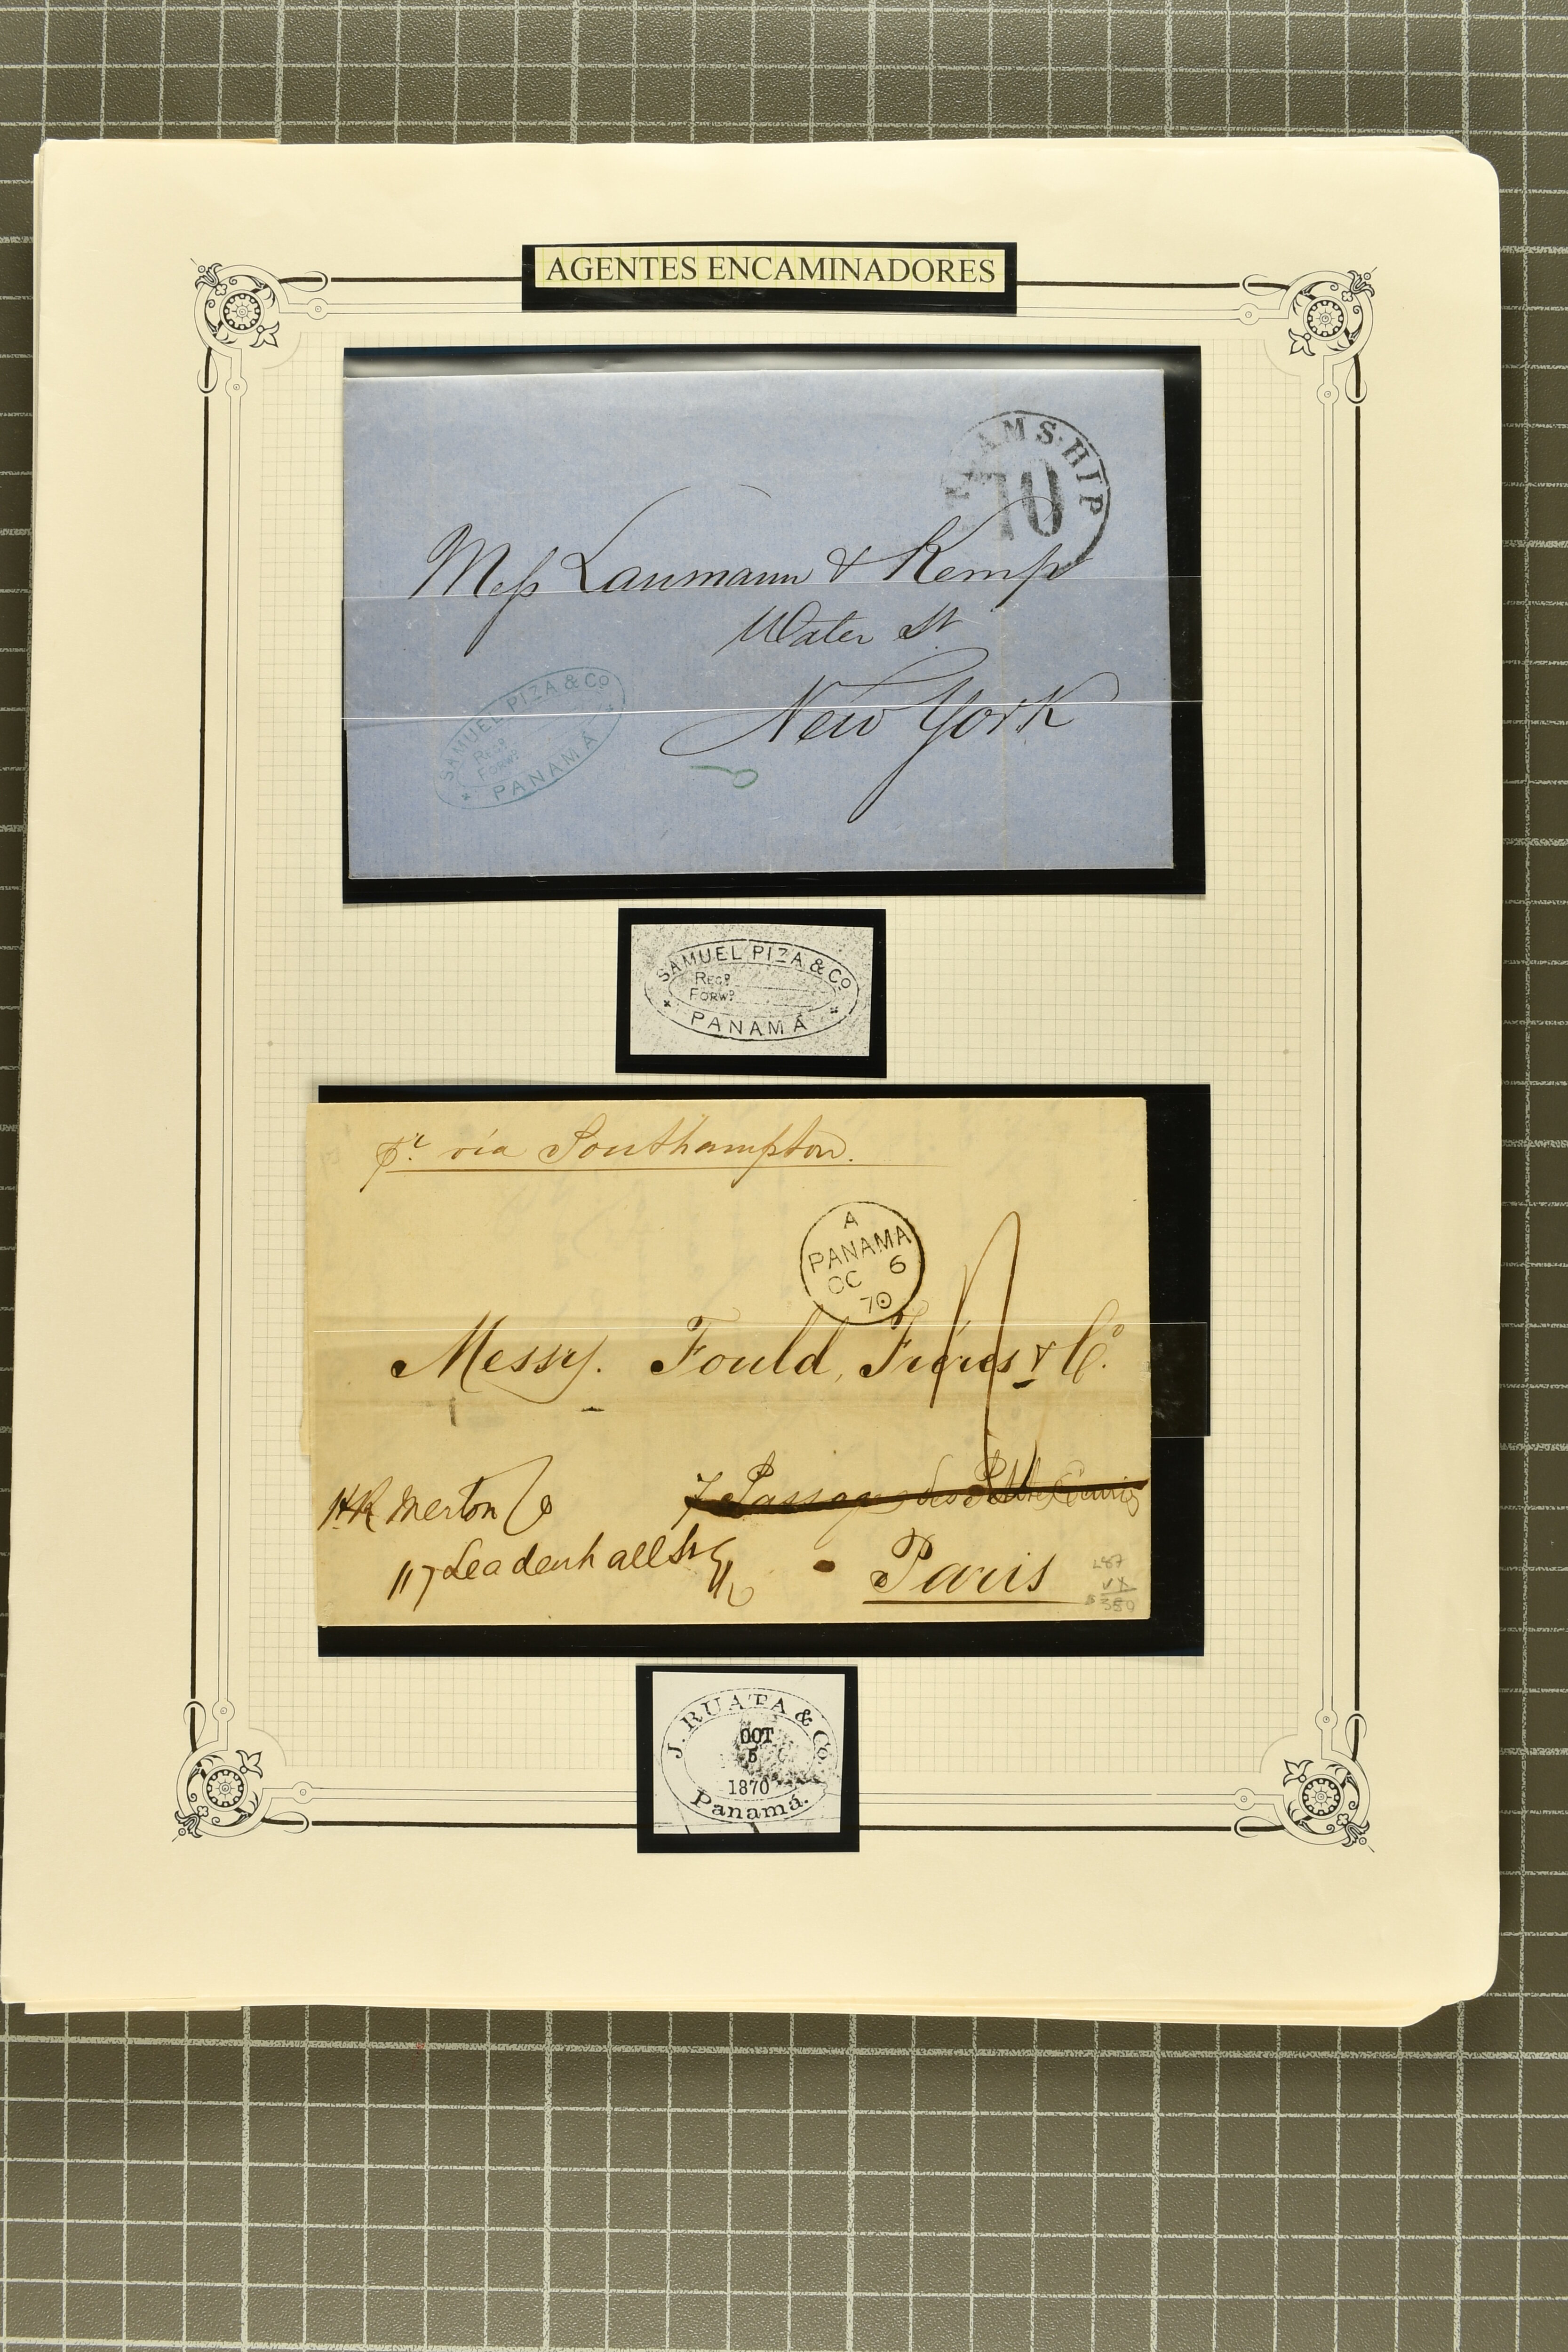 AGENTES ENCAMINADORES
STEAMSHIP
10
Mess Lanmann & Kemp
Water St
New York
SAMUEL PIZA & Co
Recd
Forwd
PANAMÁ
SAMUEL PIZA & Co
Recd
Forwd
PANAMÁ
pr. via Southampton.
A
PANAMA
OC 6
70
Messrs. Fould, Frères & Co.
7 Passage des
HR Merton Co
117 Leadenhall St
Paris
350
J. RUATA & Co.
OCT
5
1870
Panamá.